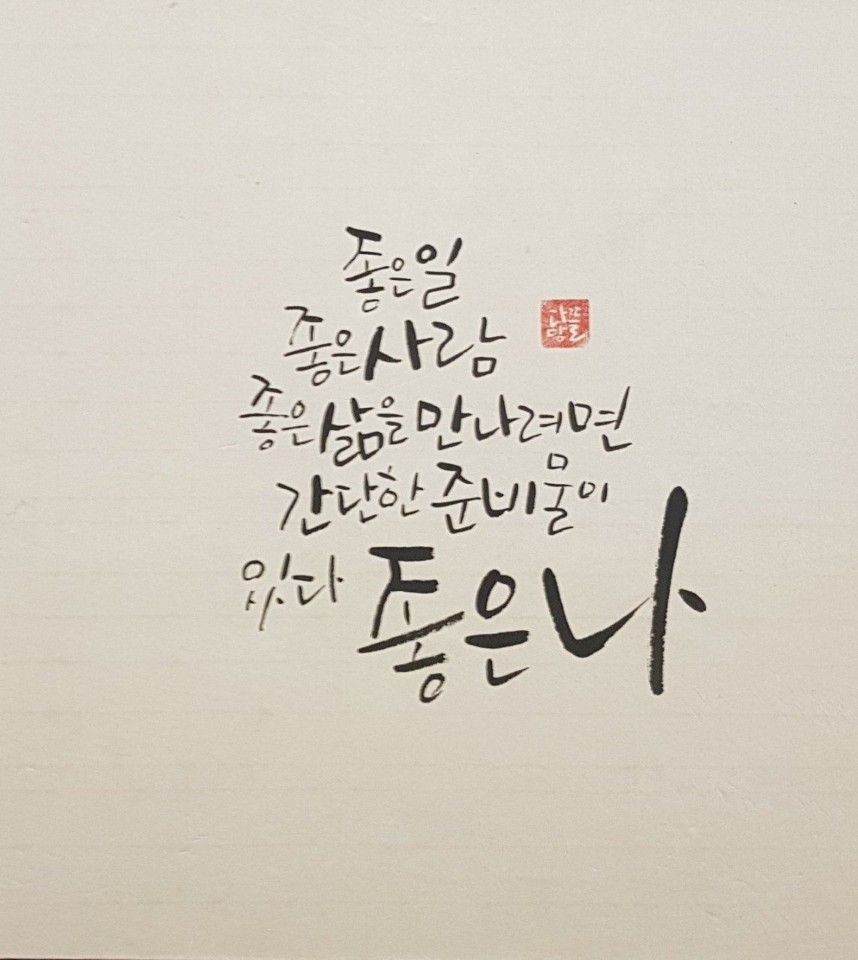 좋은일
좋은사람
좋은삶을만나려면
간단한준비물이
있다 좋은나